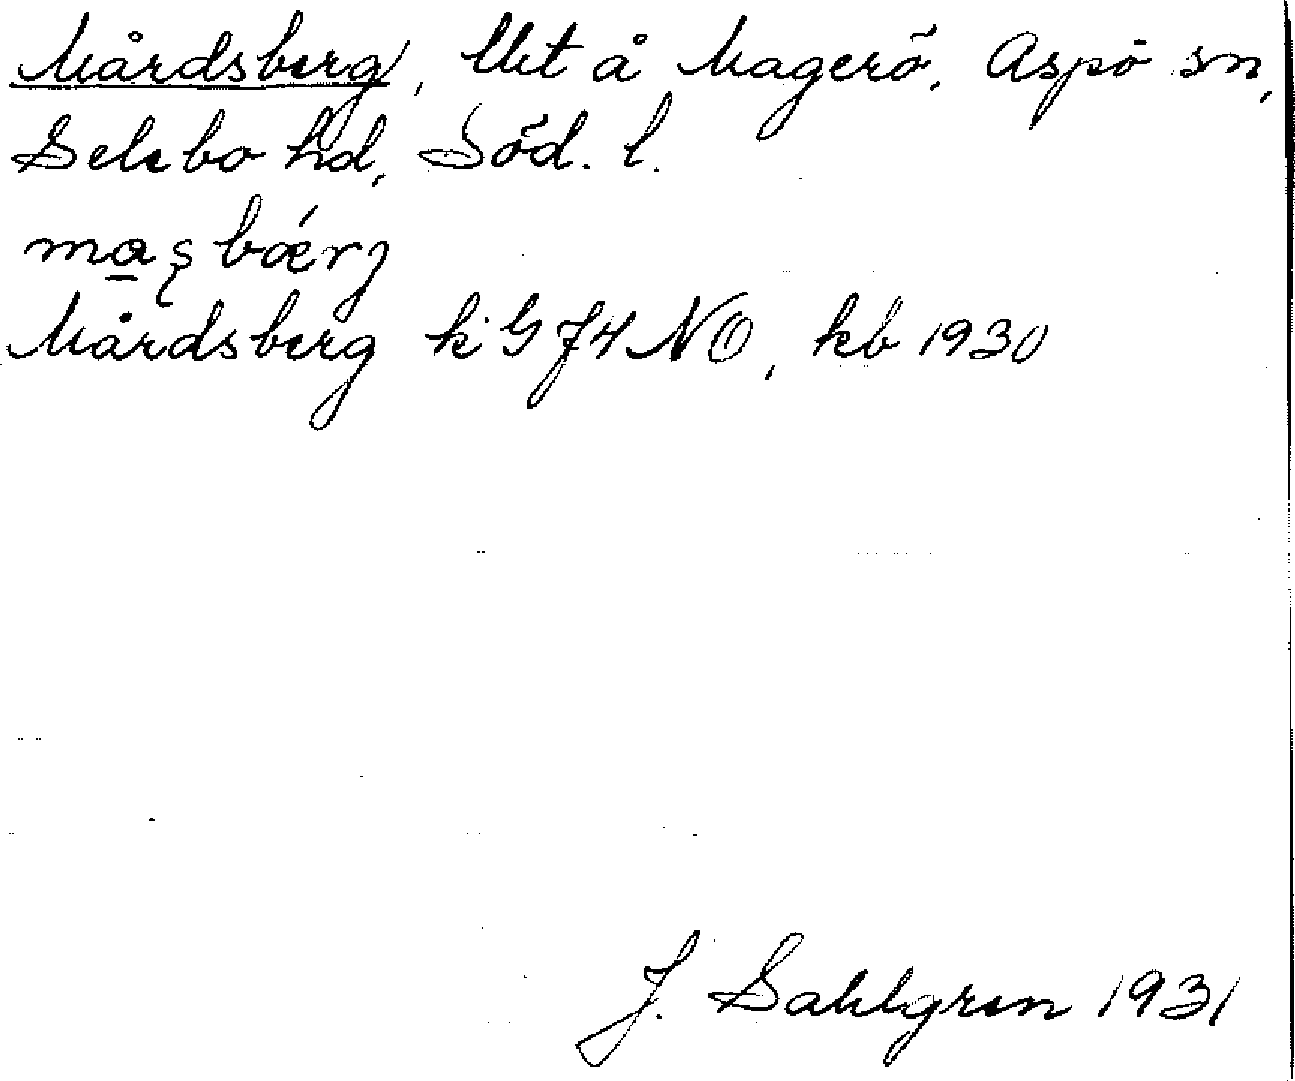 Mårdsberg, lht å Magerö, Aspö sn,
Selebo hd, Söd. l.
Mårdsberg k G J4 NO, kb 1930
J. Sahlgren 1931